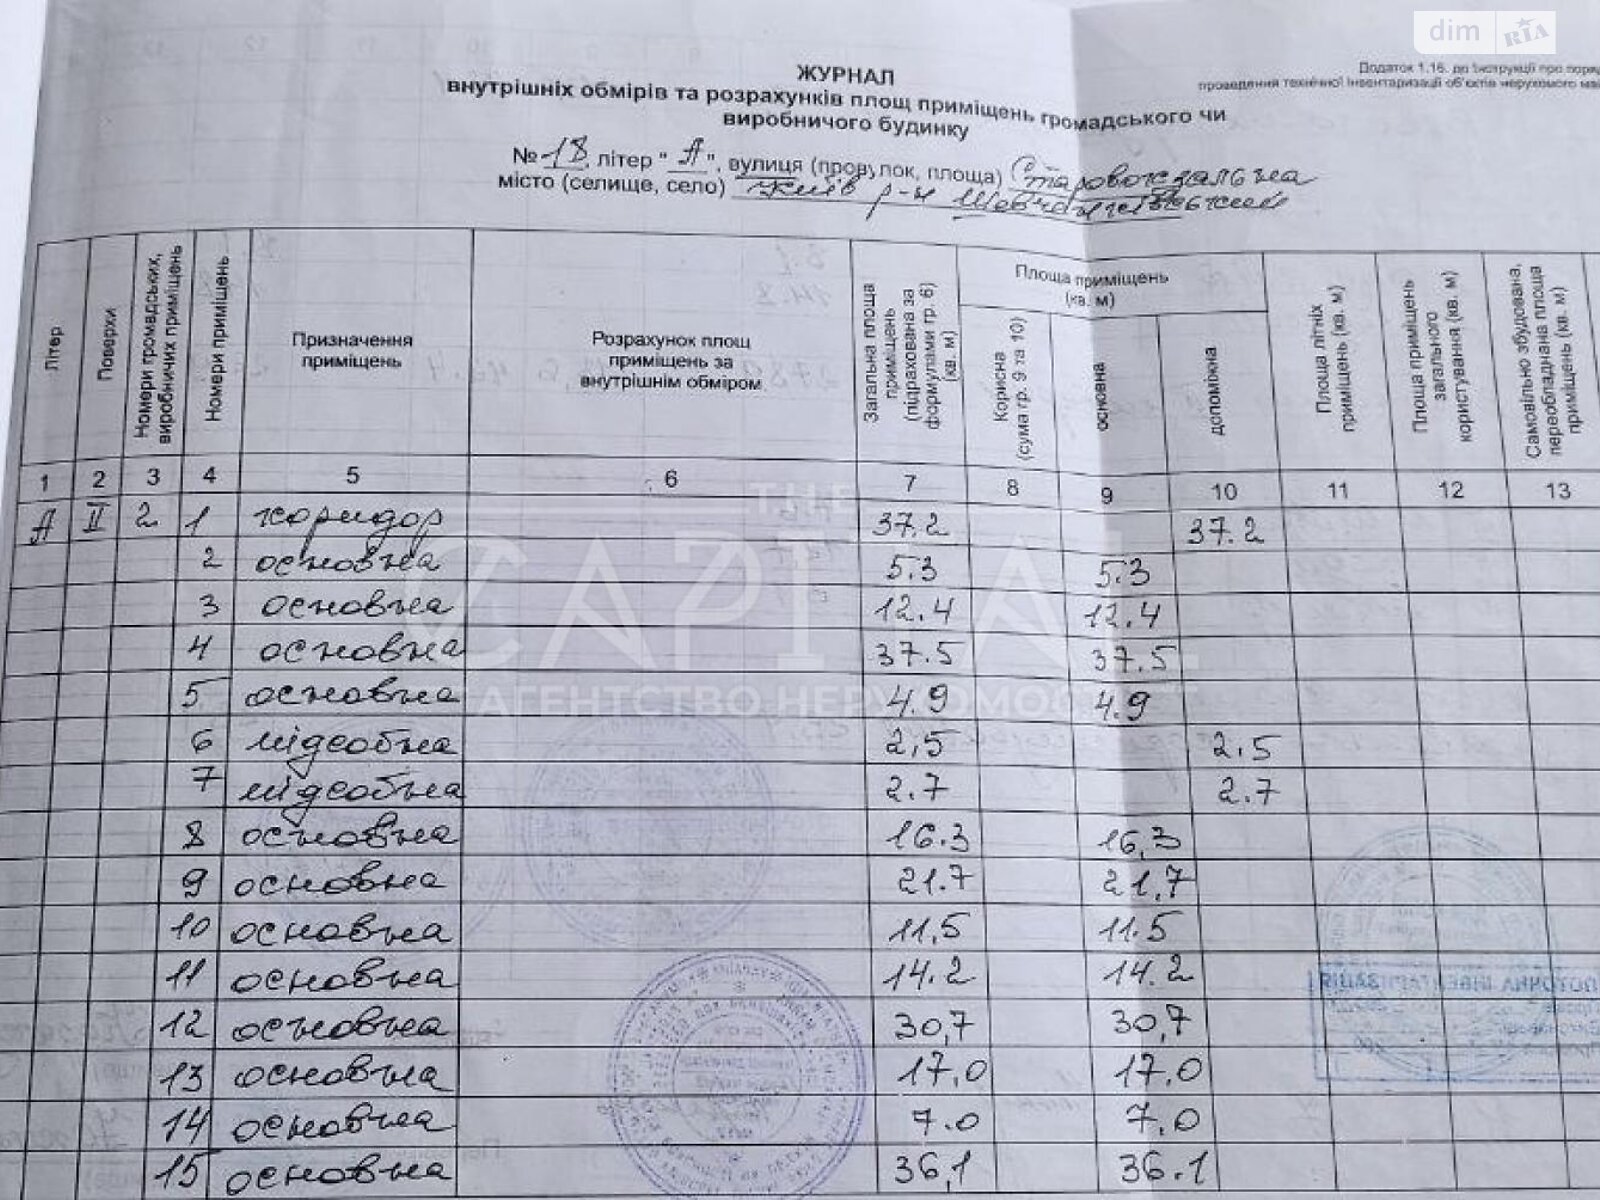 dim RIA
Додаток 1.16. до Інструкції про поря
проведення технічної інвентаризації об'єктів нерухомого ма
ЖУРНАЛ
внутрішніх обмірів та розрахунків площ приміщень громадського чи
виробничого будинку
№ 18, літер "А", вулиця (провулок, площа) Старовокзальна
місто (селище, село) Київ р-н Шевченківський
Літер
Поверхи
Номери громадських, виробничих приміщень
Номери приміщень
Призначення приміщень
Розрахунок площ приміщень за внутрішнім обміром
Загальна площа приміщень (підрахована за формулами гр. 6) (кв. м)
Площа приміщень (кв. м)
Корисна (сума гр. 9 та 10)
основна
допоміжна
Площа літніх приміщень (кв. м)
Площа приміщень загального користування (кв. м)
Самовільно збудована, переобладнана площа приміщень (кв. м)
1 2 3 4 5 6 7 8 9 10 11 12 13
А II 2 1 коридор 37.2 37.2
2 основна 5.3 5.3
3 основна 12.4 12.4
4 основна 37.5 37.5
5 основна 4.9 4.9
6 підсобна 2,5 2.5
7 підсобна 2.7 2.7
8 основна 16.3 16,3
9 основна 21.7 21,7
10 основна 11,5 11.5
11 основна 14.2 14.2
12 основна 30,7 30,7
13 основна 17,0 17.0
14 основна 7.0 7,0
15 основна 36,1 36.1
THE
CAPITAL
АГЕНТСТВО НЕРУХОМОСТІ